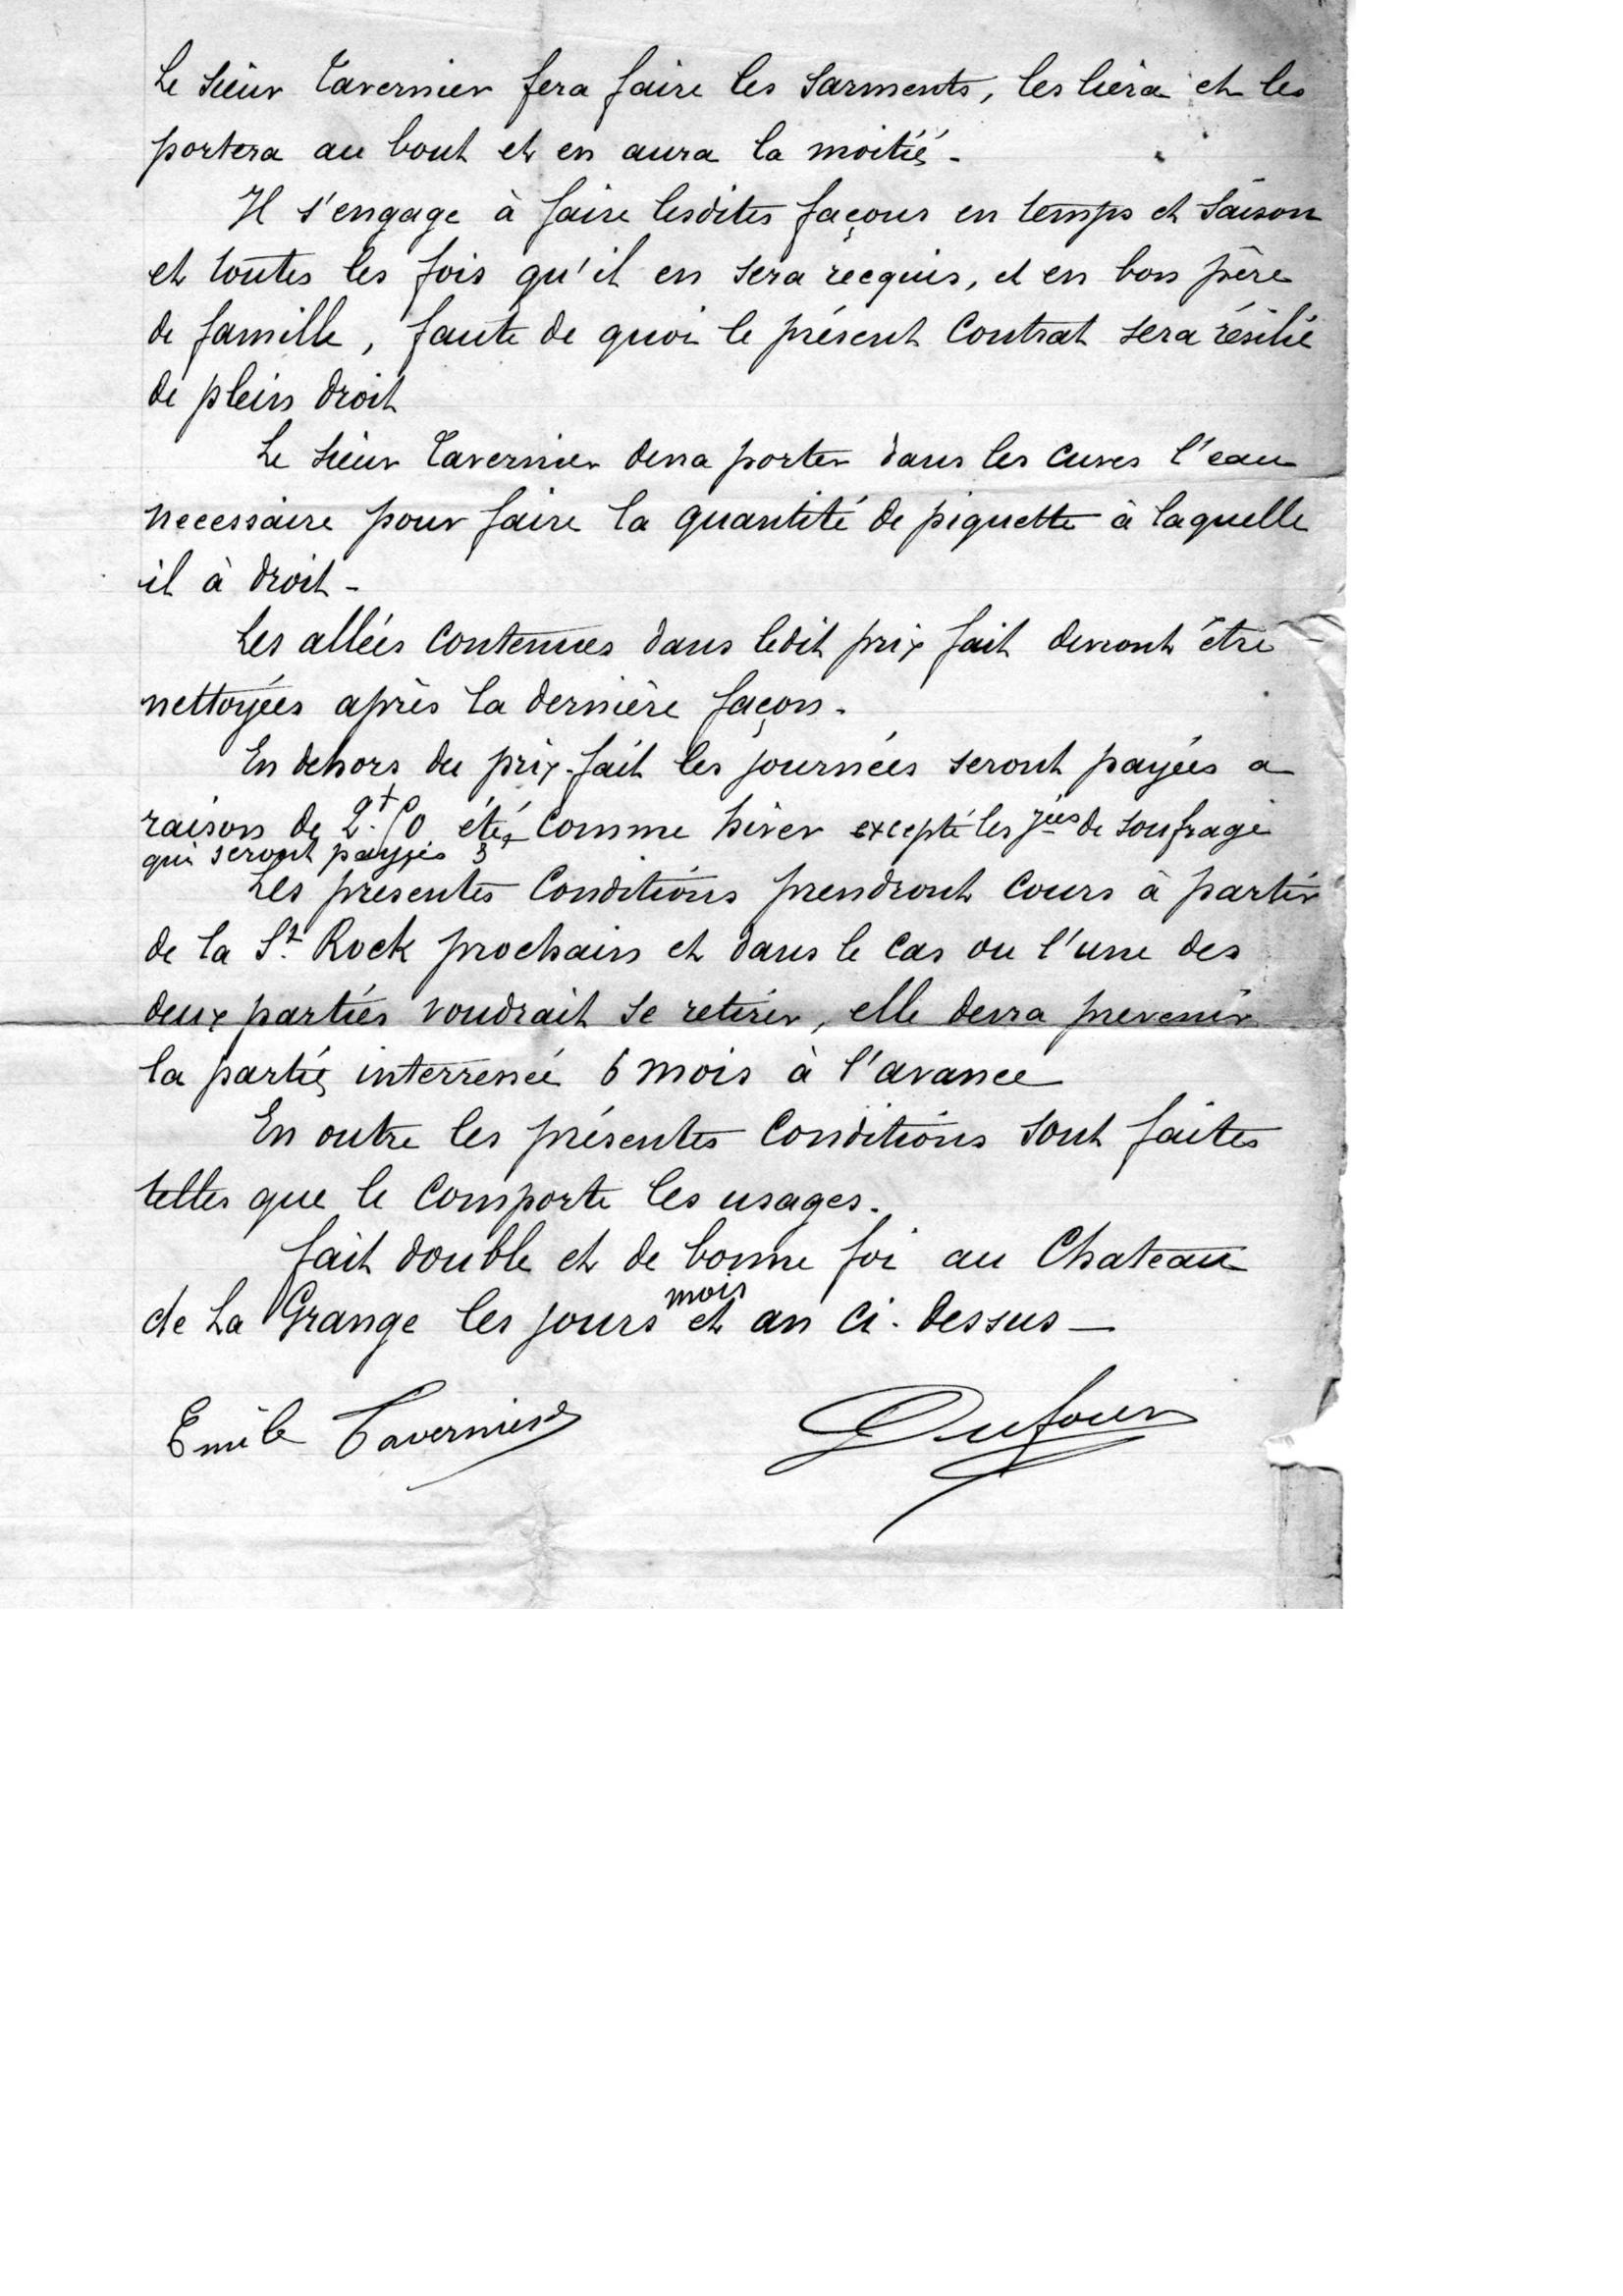 Le sieur Tavernier fera faire les sarments, les liera et les
portera au bout et en aura la moitié -
Il s'engage à faire lesdites façons en temps et saison
et toutes les fois qu'il en sera recquis, et en bon père
de famille, faute de quoi le présent contrat sera résilié
de plein droit
Le sieur Tavernier devra porter dans les cuves l'eau
necessaire pour faire la quantité de piquette à laquelle
il à droit -
Les allées contenues dans ledit prix fait devront être
nettoyées après la dernière façon.
En dehors du prix-fait les journées seront payées a
raison de 2f.50 été comme hiver excepté les jées de soufrage
qui seront payées 3f
Les presentes conditions prendront cours à partir
de la St. Rock prochain et dans le cas ou l'une des
deux parties voudrait se retirer, elle devra prevenir
la partie interressée 6 mois à l'avance
En outre les présentes conditions sont faites
telles que le comporte les usages.
fait double et de bonne foi au Chateau
de La Grange les jours mois et an ci-dessus -
Emile Tavernier
Dufour